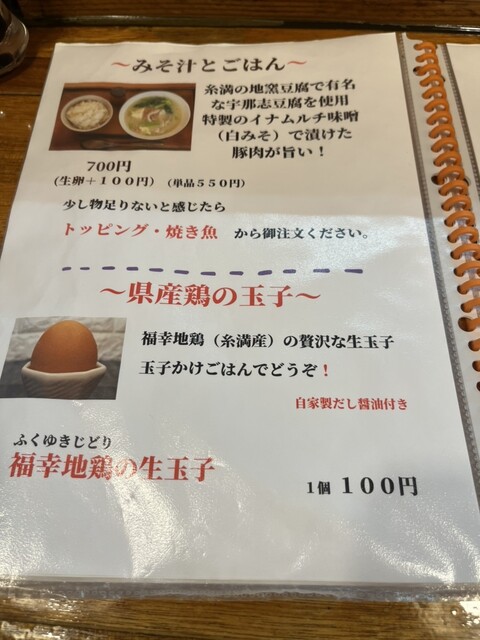 ～みそ汁とごはん～
糸満の地窯豆腐で有名
な宇那志豆腐を使用
特製のイナムルチ味噌
（白みそ）で漬けた
豚肉が旨い！
700円
（生卵＋１００円）（単品５５０円）
少し物足りないと感じたら
トッピング・焼き魚 から御注文ください。
～県産鶏の玉子～
福幸地鶏（糸満産）の贅沢な生玉子
玉子かけごはんでどうぞ！
自家製だし醤油付き
ふくゆきじどり
福幸地鶏の生玉子
１個 １００円